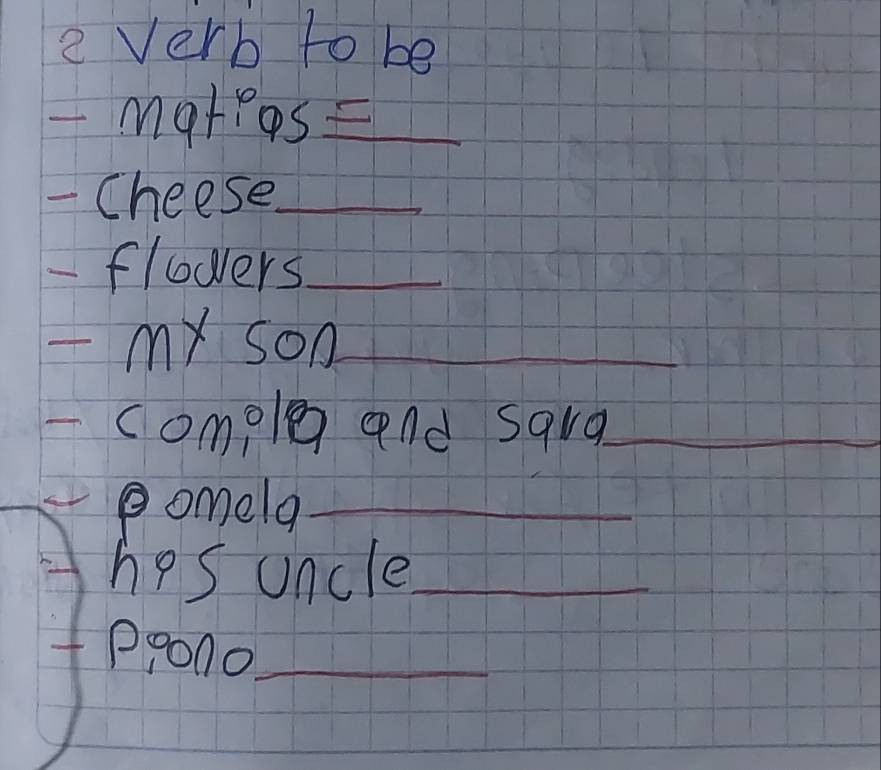 2 verb to be
- matias = ___
- cheese ___
- flowers ___
- my son ___
- comila and sara ___
- pomela ___
- his uncle ___
- Piono ___